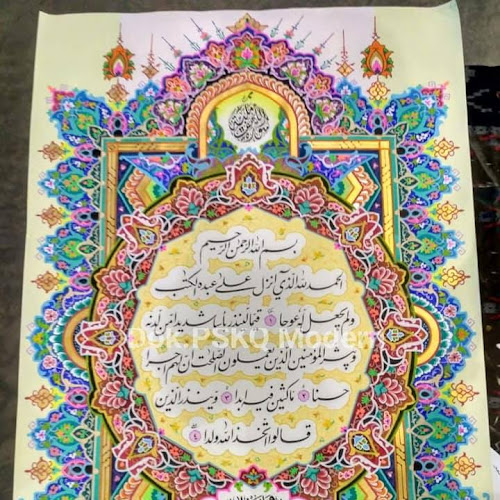 بسم الله الرحمن الرحيم
الحمد لله الذي أنزل على عبده الكتب
ولم يجعل له عوجا ١ قيما لينذر بأسا شديدا من لدنه
Dyk.PSKQ Modern
ويبشر المؤمنين الذين يعملون الصلحت أن لهم أجرا
حسنا ٢ ماكثين فيه أبدا ٣ وينذر الذين
قالوا اتخذ الله ولدا ٤